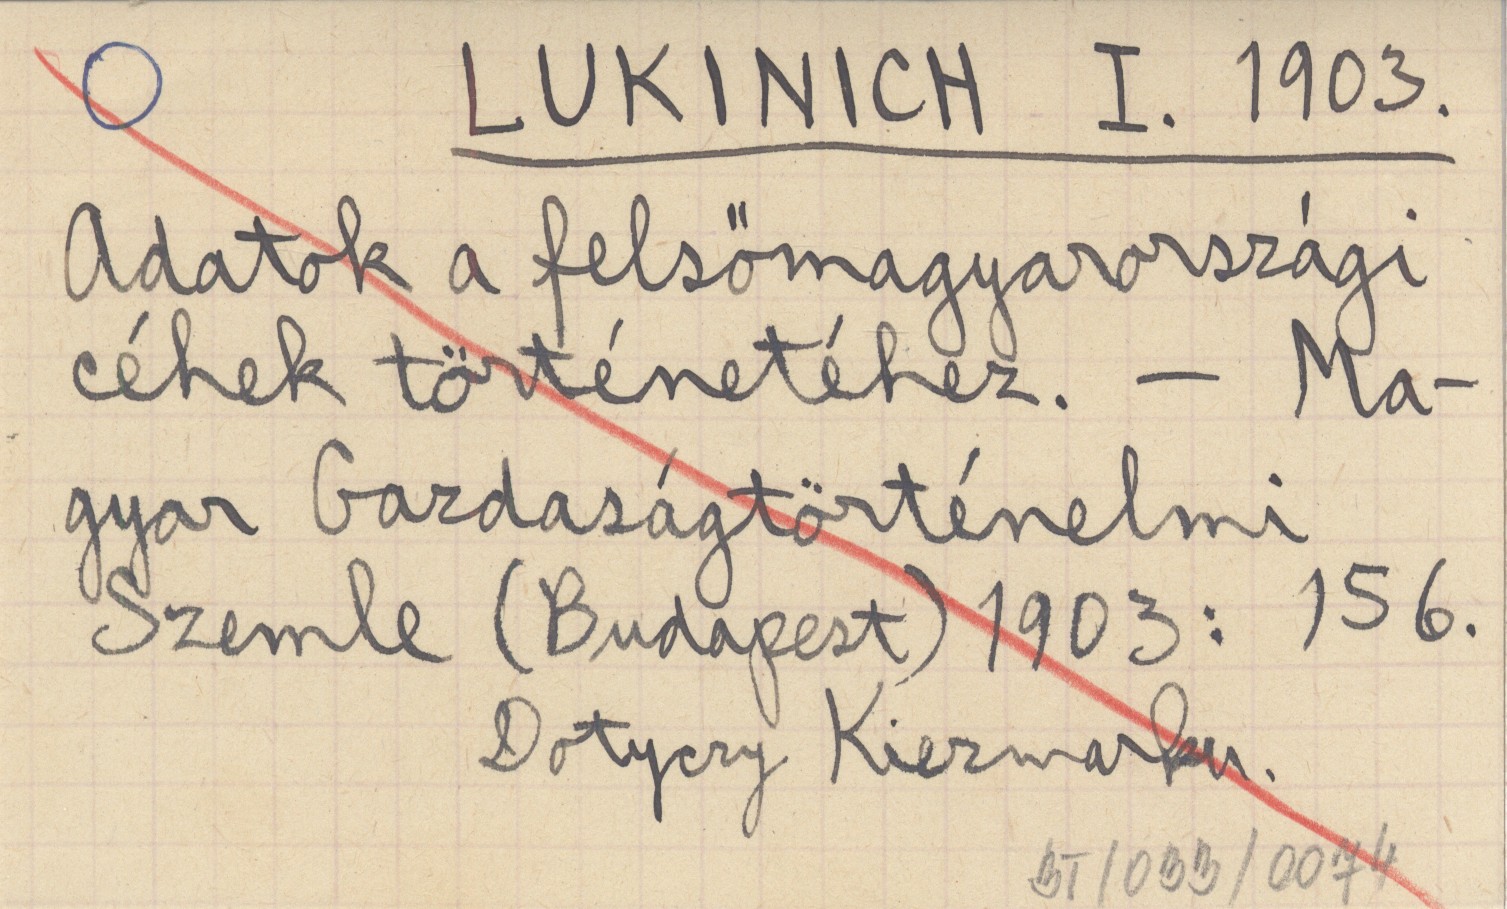 LUKINICH I. 1903.
Adatok a felsőmagyarországi
céhek történetéhez. — Ma-
gyar Gazdaságtörténelmi
Szemle (Budapest) 1903: 156.
Dotyczy Kiezmarku.
BT/033/0074